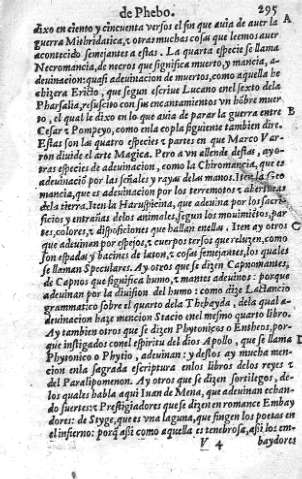 de Phebo. 295
dixo en ciento y cincuenta versos el fin que auia de auer la
guerra Mithridatica, z otras muchas cosas que leemos auer
acontecido semejantes a estas. La quarta especie se llama
Necromancia, de necros que significa muerto, y mancia, a-
deuinacion: quasi adeuinacion de muertos, como aquella he
chizera Ericto, que segun escriue Lucano en el sexto dela
Pharsalia, resuscito con sus encantamientos vn hõbre muer
to, el qual le dixo en lo que auia de parar la guerra entre
Cesar z Pompeyo, como enla copla siguiente tambien dire.
Estas son las quatro especies z partes en que Marco Var-
ron diuide el arte Magica. Pero a vn allende destas, ay o-
tras especies de adeuinacion, como la Chiromancia, que es
adeuinaciõ por las señales y rayas delas manos. Iten la Geo
mancia, que es adeuinacion por los terremotos z aberturas
dela tierra. Iten la Haruspicina, que adeuina por los sacre
ficios y entrañas delos animales, segun los mouimiẽtos, par
tes, colores, z disposiciones que hallan enella. Iten ay otros
que adeuinan por espejos, z cuerpos tersos que reluzen, como
son espadas y bacines de laton, z cosas semejantes, los quales
se llaman Speculares. Ay otros que se dizen Capnomantes,
de Capnos que significa humo, z mantes adeuinos: porque
adeuinan por la diuision del humo: como dize Lactancio
grammatico sobre el quarto dela Thebayda, dela qual a-
deuinacion haze mencion Stacio enel mesmo quarto libro.
Ay tambien otros que se dizen Phytonicos o Entheos, por-
que instigados conel espiritu del dios Apollo, que se llama
Phytonico o Phytio, adeuinan: y destos ay mucha men-
cion enla sagrada escriptura enlos libros delos reyes z
del Paralipomenon. Ay otros que se dizen sortilegos, de-
los quales habla aqui Iuan de Mena, que adeuinan echan-
do suertes: z Prestigiadores que se dizen en romance Embay
dores: de Styge, que es vna laguna, que fingen los poetas en
el infierno: porq̃ assi como aquella es tenebrosa, assi los em-
V 4 baydores
A
B
C
D